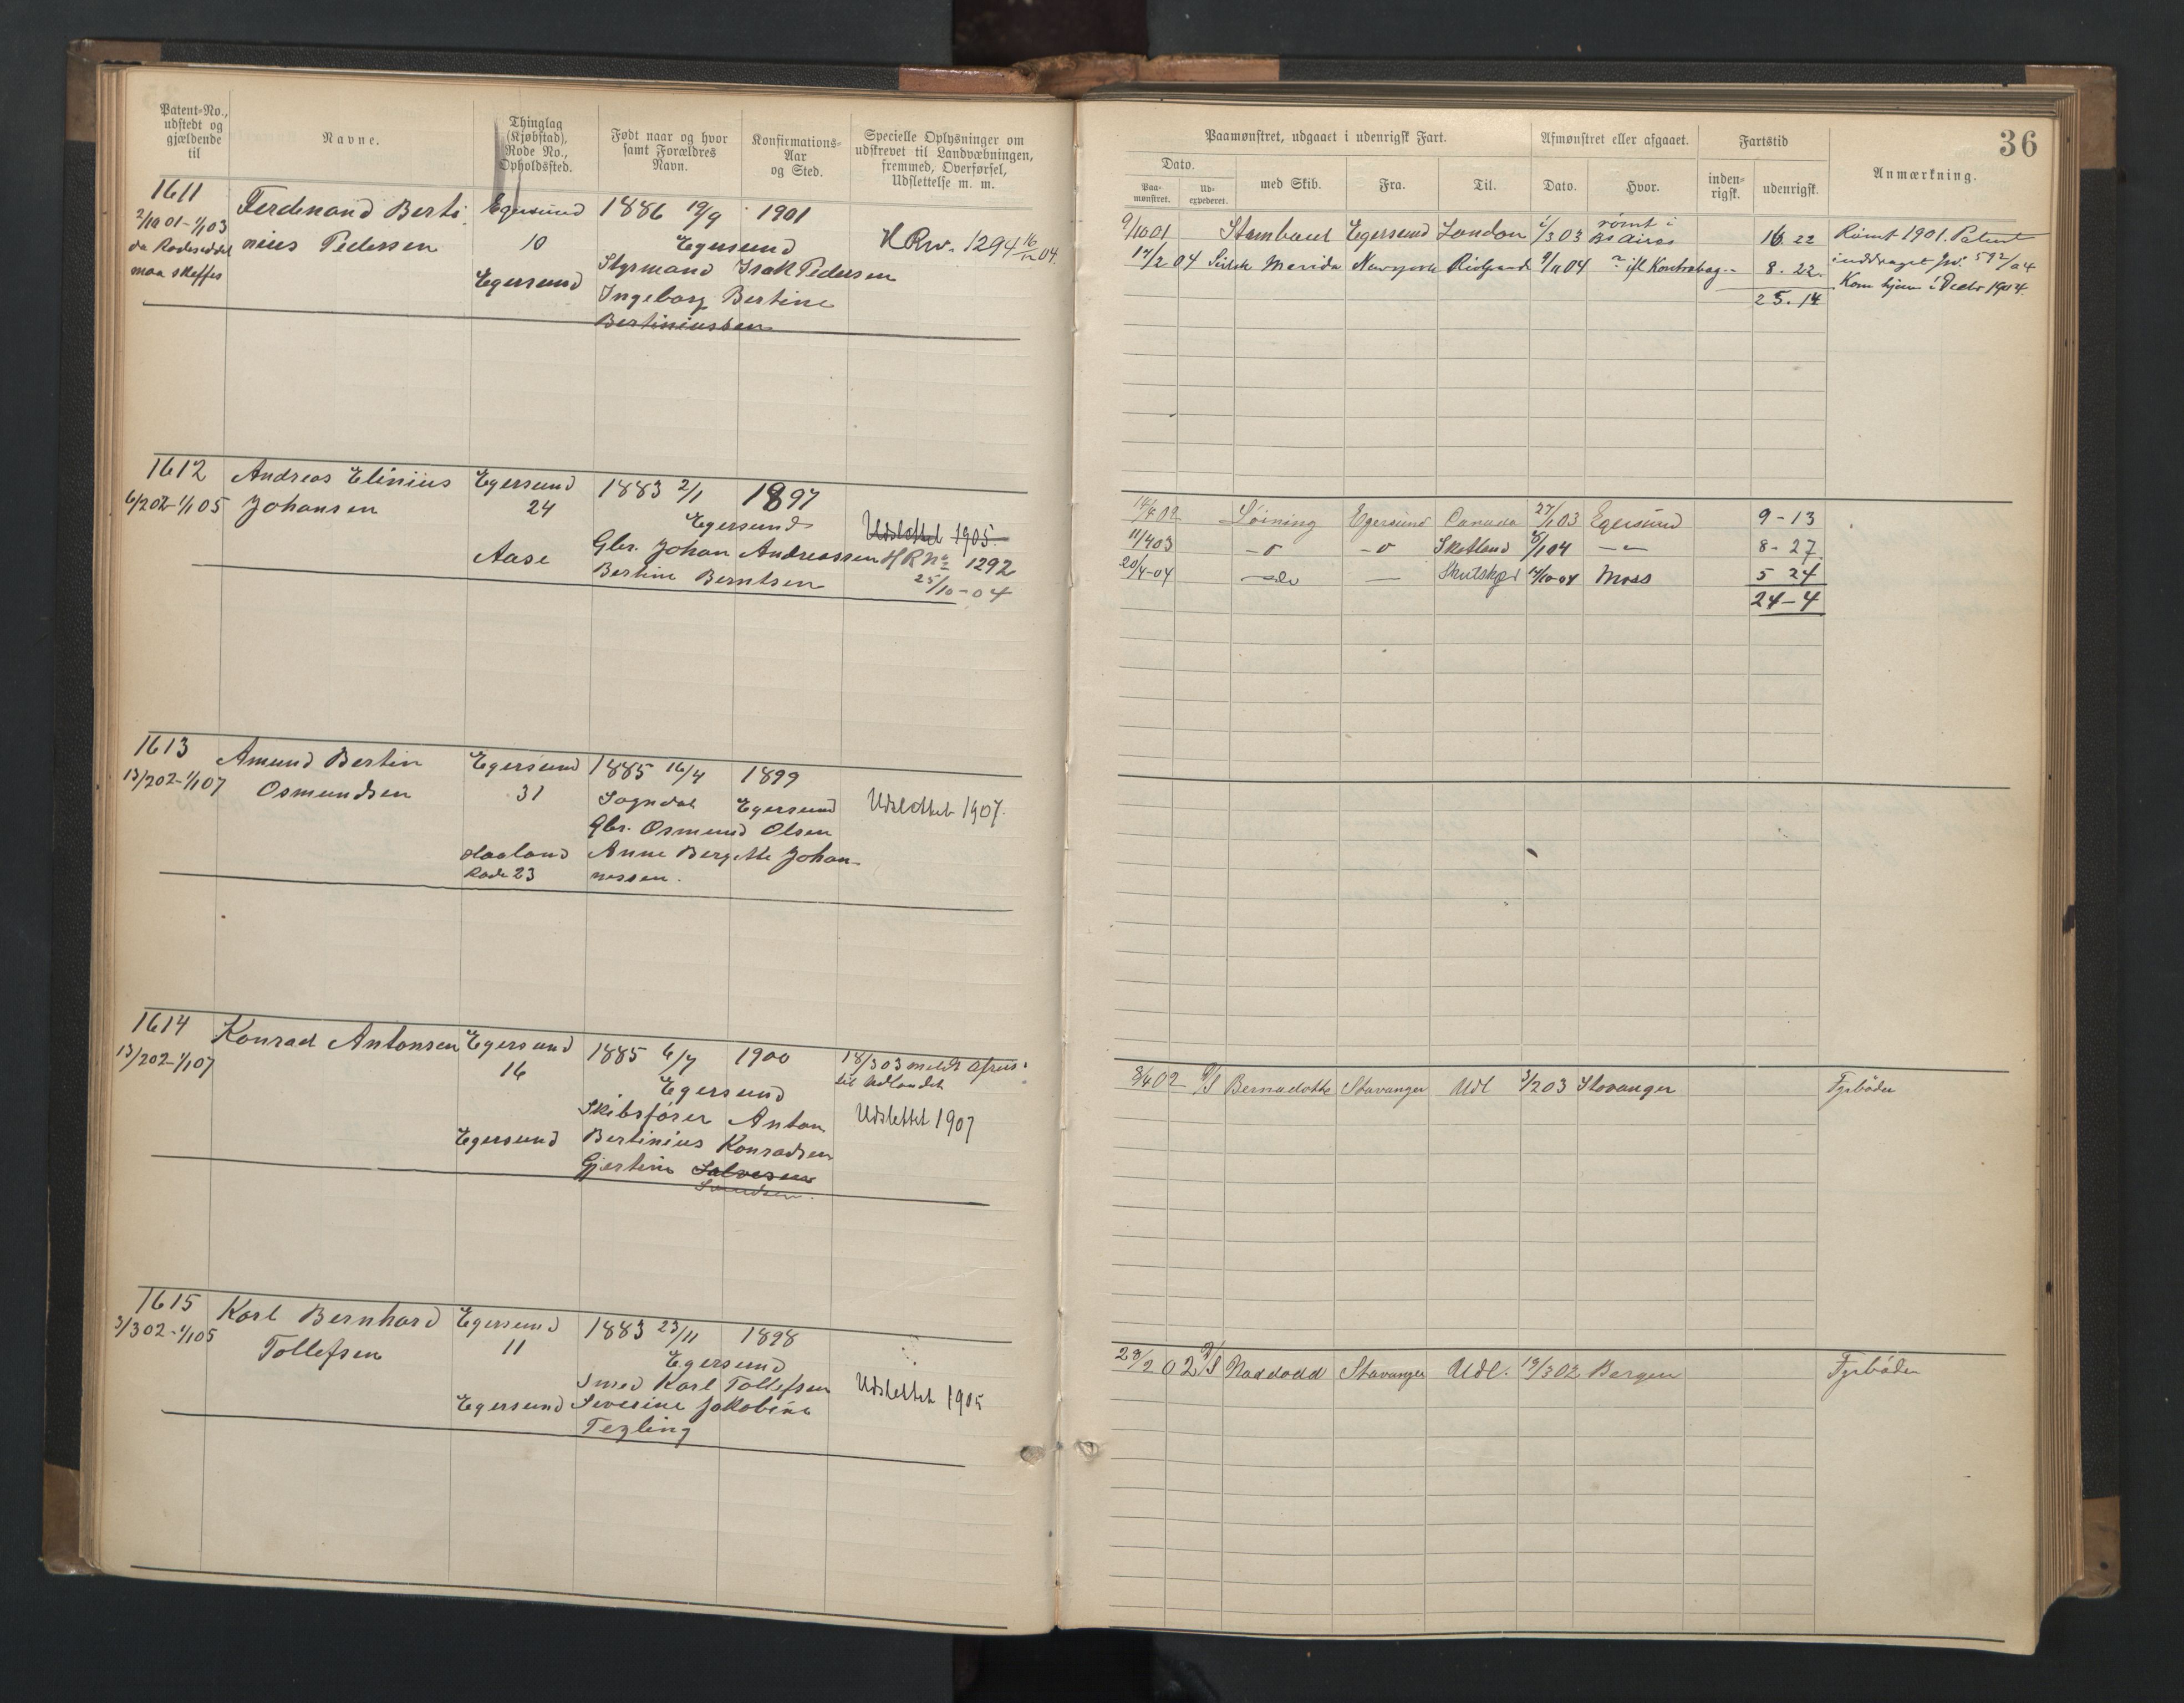 36
Patent-No., udstedt og gjældende til
Navne.
Thinglag (Kjøbstad), Rode No., Opholdssted.
Født naar og hvor samt Forældres Navn.
Konfirmations-Aar og Sted.
Specielle Oplysninger om udskrevet til Landvæbningen, fremmed, Overførsel, Udslettelse m. m.
Paamønstret, udgaaet i udenrigsk Fart.
Dato.
Paa-mønstret.
Ud-expederet.
med Skib.
Fra.
Til.
Afmønstret eller afgaaet.
Dato.
Hvor.
Fartstid
inden-rigsk.
udenrigsk.
Anmærkning.
1611
2/10 01 - 1/1 03
da Rodeseddel
maa skaffes
Ferdinand Berti
nius Pedersen
Egersund
10
Egersund
1886 19/9 1901
Egersund
Styrmand Isak Pedersen
Ingeborg Bertine
Bertiniussen
H Rw. 1294 16/12 04.
9/10 01 Stambaul Egersund London 1/3 03 rømt i Bs Aires 16. 22
17/2 04 Merida Newyork 9/11 04 8. 22.
25. 14
Rømt 1901. Patent
inddraget
Kom hjem i Decbr 1904.
1612
6/2 02 - 1/1 05
Andreas Elinius
Johansen
Egersund
24
Aase
1883 2/1 1897
Egersund
Gbr. Johan Andreassen
Bertine Berntsen
Udslettet 1905.
H R No 1292
25/10 - 04
14/4 02 Løining Egersund Canada 27/1 03 Egersund 9 - 13
11/4 03 - o - o Skotland 8/1 04 - " - 8 - 27
20/4 - 04 - do - Skutskjer 14/10 04 Moss 5 24
24 - 4
1613
13/2 02 - 1/1 07
Amund Bertin
Osmundsen
Egersund
31
Haaland
Rode 23
1885 16/4 1899
Sogndal Egersund
Gbr. Osmund Olsen
Anne Bergitte Johan-
nessen.
Udslettet 1907.
1614
13/2 02 - 1/1 07
Konrad Antonsen
Egersund
16
Egersund
1885 6/7 1900
Egersund
Skibsfører Anton
Bertinius Konradsen
Gjertine Salvesen
Svendsen.
18/3 03 meldt afreis
til Udlandet
Udslettet 1907
8/4 02 D/S Bernadotte Stavanger Udl 3/2 03 Stavanger
Fyrbøder
1615
3/3 02 - 1/1 05
Karl Bernhard
Tollefsen
Egersund
11
Egersund
1883 23/11 1898
Egersund
Smed Karl Tollefsen
Severine Jakobine
Tegling
Udslettet 1905
28/2 02 D/S Naddodd Stavanger Udl. 19/3 02 Bergen
Fyrbøder